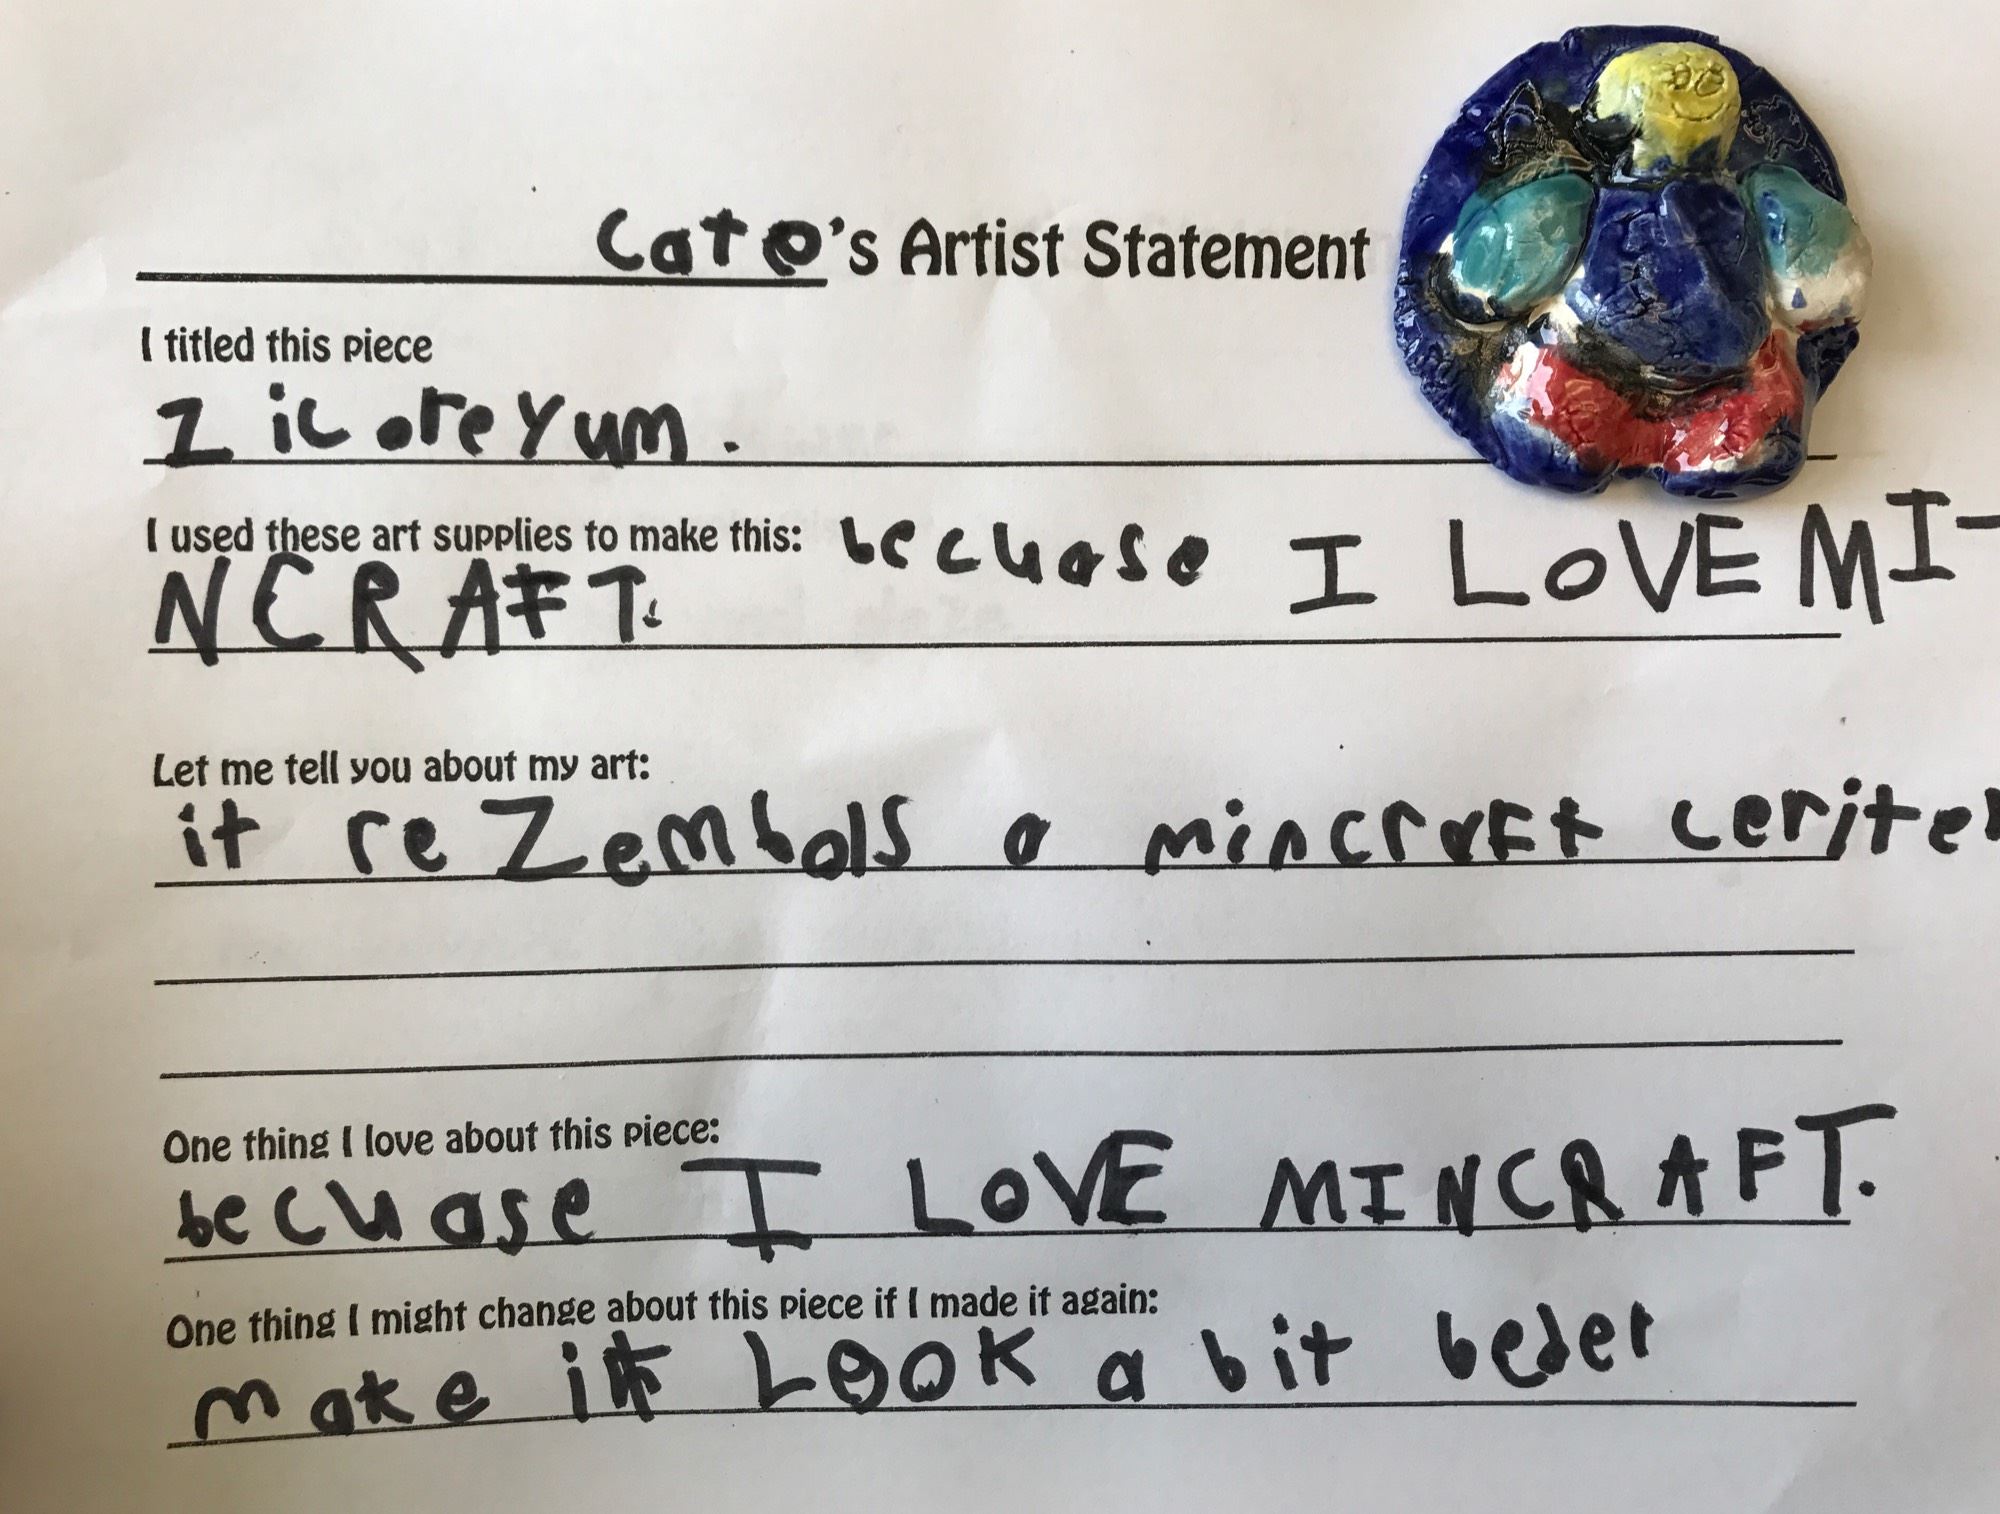 Cato's Artist Statement
I titled this piece
Zicoreyum.
I used these art supplies to make this: becuase I LOVE MI-
NCRAFT.
Let me tell you about my art:
it reZembols a mincraft ceriter
One thing I love about this piece:
becuase I LOVE MINCRAFT.
One thing I might change about this piece if I made it again:
make it LOOK a bit beder